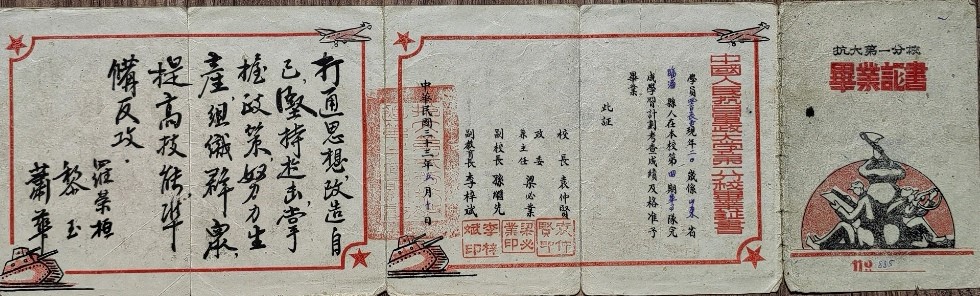 抗大第一分校
畢業証書
中國人民抗日軍政大學第一分校畢業証書
學員
現年二
歲係山東省
臨淄縣人在本校第四期
隊完
成學習計劃考查成績及格准予
畢業
此証
校長 袁仲賢
政委
系主任 梁必業
副校長 孫繼先
副教育長 李梓斌
中華民國三十三年五月十日
袁仲賢印
梁必業印
李梓斌印
打通思想,改造自
己,堅持出击,掌
握政策,努力生
產,組織群眾,
提高技能,準
備反攻.
羅榮桓
黎玉
蕭華
№ 835